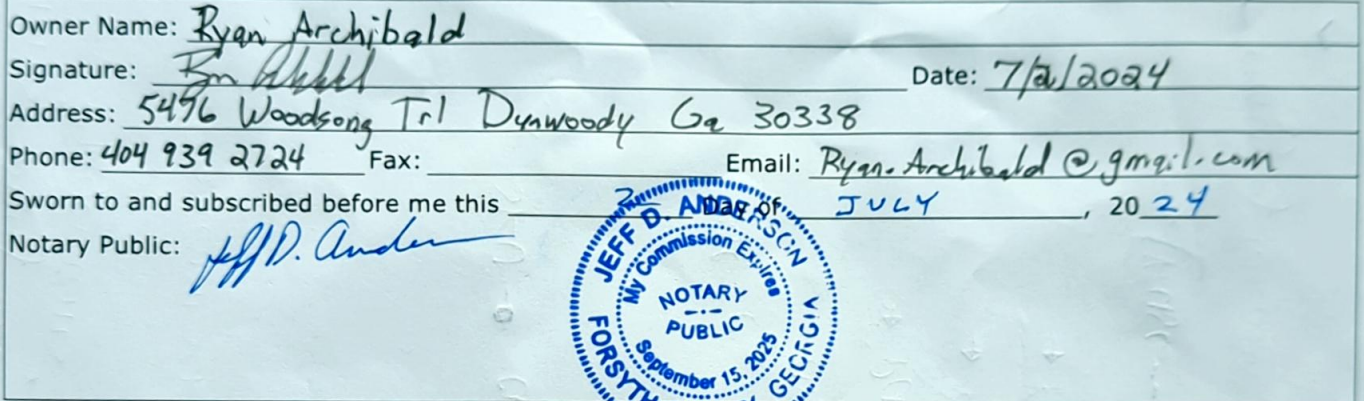 Owner Name: Ryan Archibald
Signature:
Date: 7/2/2024
Address: 5496 Woodsong Trl Dunwoody Ga 30338
Phone: 404 939 2724 Fax: Email: Ryan.Archibald@gmail.com
Sworn to and subscribed before me this 2 Day of JULY, 2024
Notary Public: Jeff D. Anderson
JEFF D. ANDERSON
My Commission Expires
NOTARY
PUBLIC
September 15, 2025
FORSYTH GEORGIA